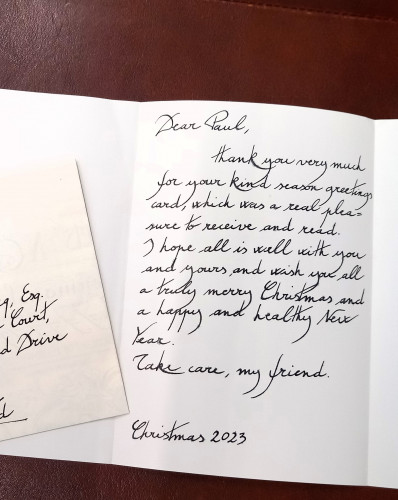 Dear Paul,
thank you very much
for your kind season greetings
card, which was a real plea=
sure to receive and read.
I hope all is well with you
and yours and wish you all
a truly merry Christmas and
a happy and healthy New
Year.
Take care, my friend.
Christmas 2023
Esq.
Court,
Drive